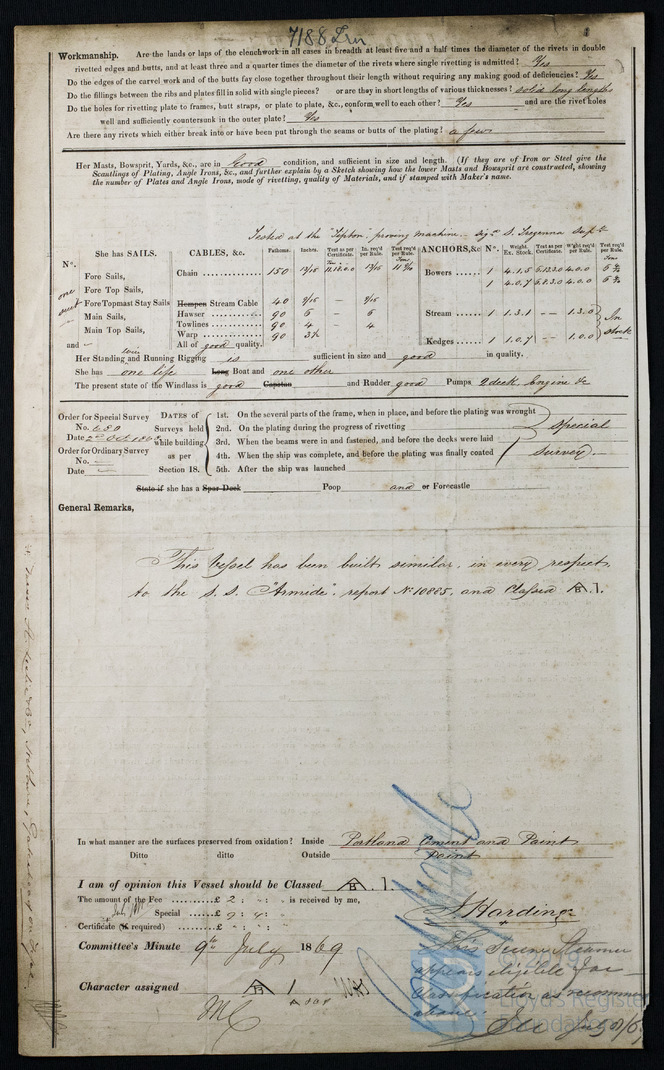 7188 Irn
Workmanship. Are the lands or laps of the clenchwork in all cases in breadth at least five and a half times the diameter of the rivets in double
rivetted edges and butts, and at least three and a quarter times the diameter of the rivets where single rivetting is admitted? Yes
Do the edges of the carvel work and of the butts fay close together throughout their length without requiring any making good of deficiencies? Yes
Do the fillings between the ribs and plates fill in solid with single pieces? or are they in short lengths of various thicknesses? solid long lengths
Do the holes for rivetting plate to frames, butt straps, or plate to plate, &c., conform well to each other? Yes and are the rivet holes
well and sufficiently countersunk in the outer plate? Yes
Are there any rivets which either break into or have been put through the seams or butts of the plating? a few
Her Masts, Bowsprit, Yards, &c., are in Good condition, and sufficient in size and length. (If they are of Iron or Steel give the
Scantlings of Plating, Angle Irons, &c., and further explain by a Sketch showing how the lower Masts and Bowsprit are constructed, showing
the number of Plates and Angle Irons, mode of rivetting, quality of Materials, and if stamped with Maker's name.
Tested at the "Tipton" proving machine. Sigd S. Tregenna Supt
She has SAILS. CABLES, &c. Fathoms. Inches. Test as per Certificate. In. req'd per Rule. Test req'd per Rule. ANCHORS,&c Nº. Weight. Ex. Stock. Test as per Certificate. W'ght req'd per Rule. Test req'd per Rule.
Nº.
Chain 150 13/16 11.17.0.0 13/16 Bowers 1 4.1.5 5.13.3.0 4.0.0
Fore Sails,
1 4.0.7 5.12.3.0 4.0.0
one Fore Top Sails,
suit Fore Topmast Stay Sails Hempen Stream Cable 40 9/16 - 9/16
Main Sails, Hawser 90 5 - 5 Stream 1 1.3.1 -- 1.3.0
Main Top Sails, Towlines 90 4 - 4 In stock
Warp 90 3½ Kedges 1 1.0.7 -- 1.0.0
and All of good quality.
Her Standing wire and Running Rigging is sufficient in size and good in quality.
She has one life Long Boat and one other
The present state of the Windlass is good Capstan and Rudder good Pumps 2 deck Engine &c
Order for Special Survey No. 680 Date 2nd Oct
Order for Ordinary Survey No. Date
DATES of Surveys held while building as per Section 18.
1st. On the several parts of the frame, when in place, and before the plating was wrought
2nd. On the plating during the progress of rivetting
3rd. When the beams were in and fastened, and before the decks were laid
4th. When the ship was complete, and before the plating was finally coated
5th. After the ship was launched
Special Survey.
State if she has a Spar Deck Poop and or Forecastle
General Remarks,
This Vessel has been built similar, in every respect,
to the S.S. "Armide", report Nº 10885, and Classed A 1.
In what manner are the surfaces preserved from oxidation? Inside Portland Cement and Paint
Ditto ditto Outside paint
I am of opinion this Vessel should be Classed A 1.
The amount of the Fee £ 2 : " : " is received by me,
Special £ 9 : 4 : "
Certificate (if required) £ " : " : "
J. Harding
Committee's Minute 9th July 1869
This Screw Steamer
appears eligible for
Classification as recommended
above
Character assigned A 1
Lloyd's Register
Foundation